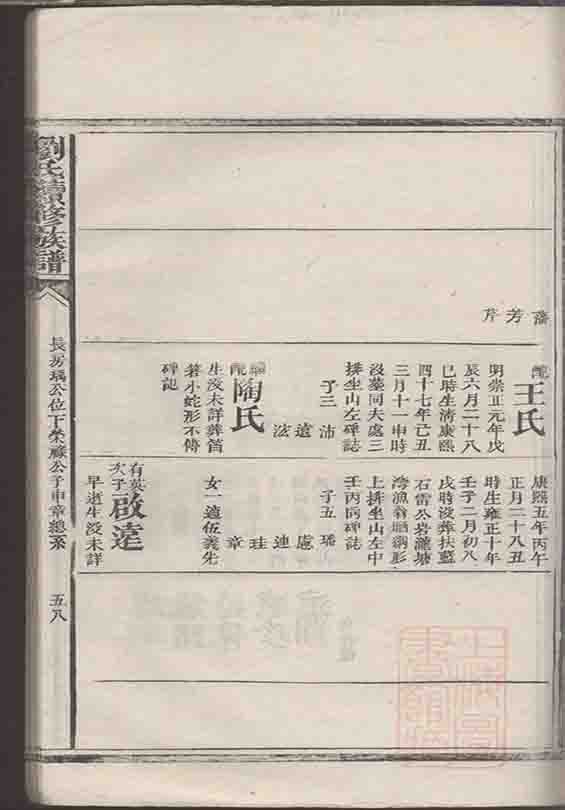 藩
芳
芹
配王氏
明崇正元年戊
辰六月二十八
巳時生清康熙
四十七年己丑
三月十一申時
沒墓同夫處三
排坐山左碑誌
子三
沛
遠
泫
繼配陶氏
生沒未詳葬笛
箬小蛇形不傳
碑記
康熙五年丙午
正月二十八丑
時生雍正十年
壬子二月初八
戌時沒葬扶藍
石雷公岩瀧塘
灣漁翁晒網形
上排坐山左中
壬丙向碑誌
子五
璠
處
連
珪
章
女一適伍義先
有英次子啟達
早逝生沒未詳
劉氏續修族譜
長房瑀公位下榮祿公子申章總系
五八